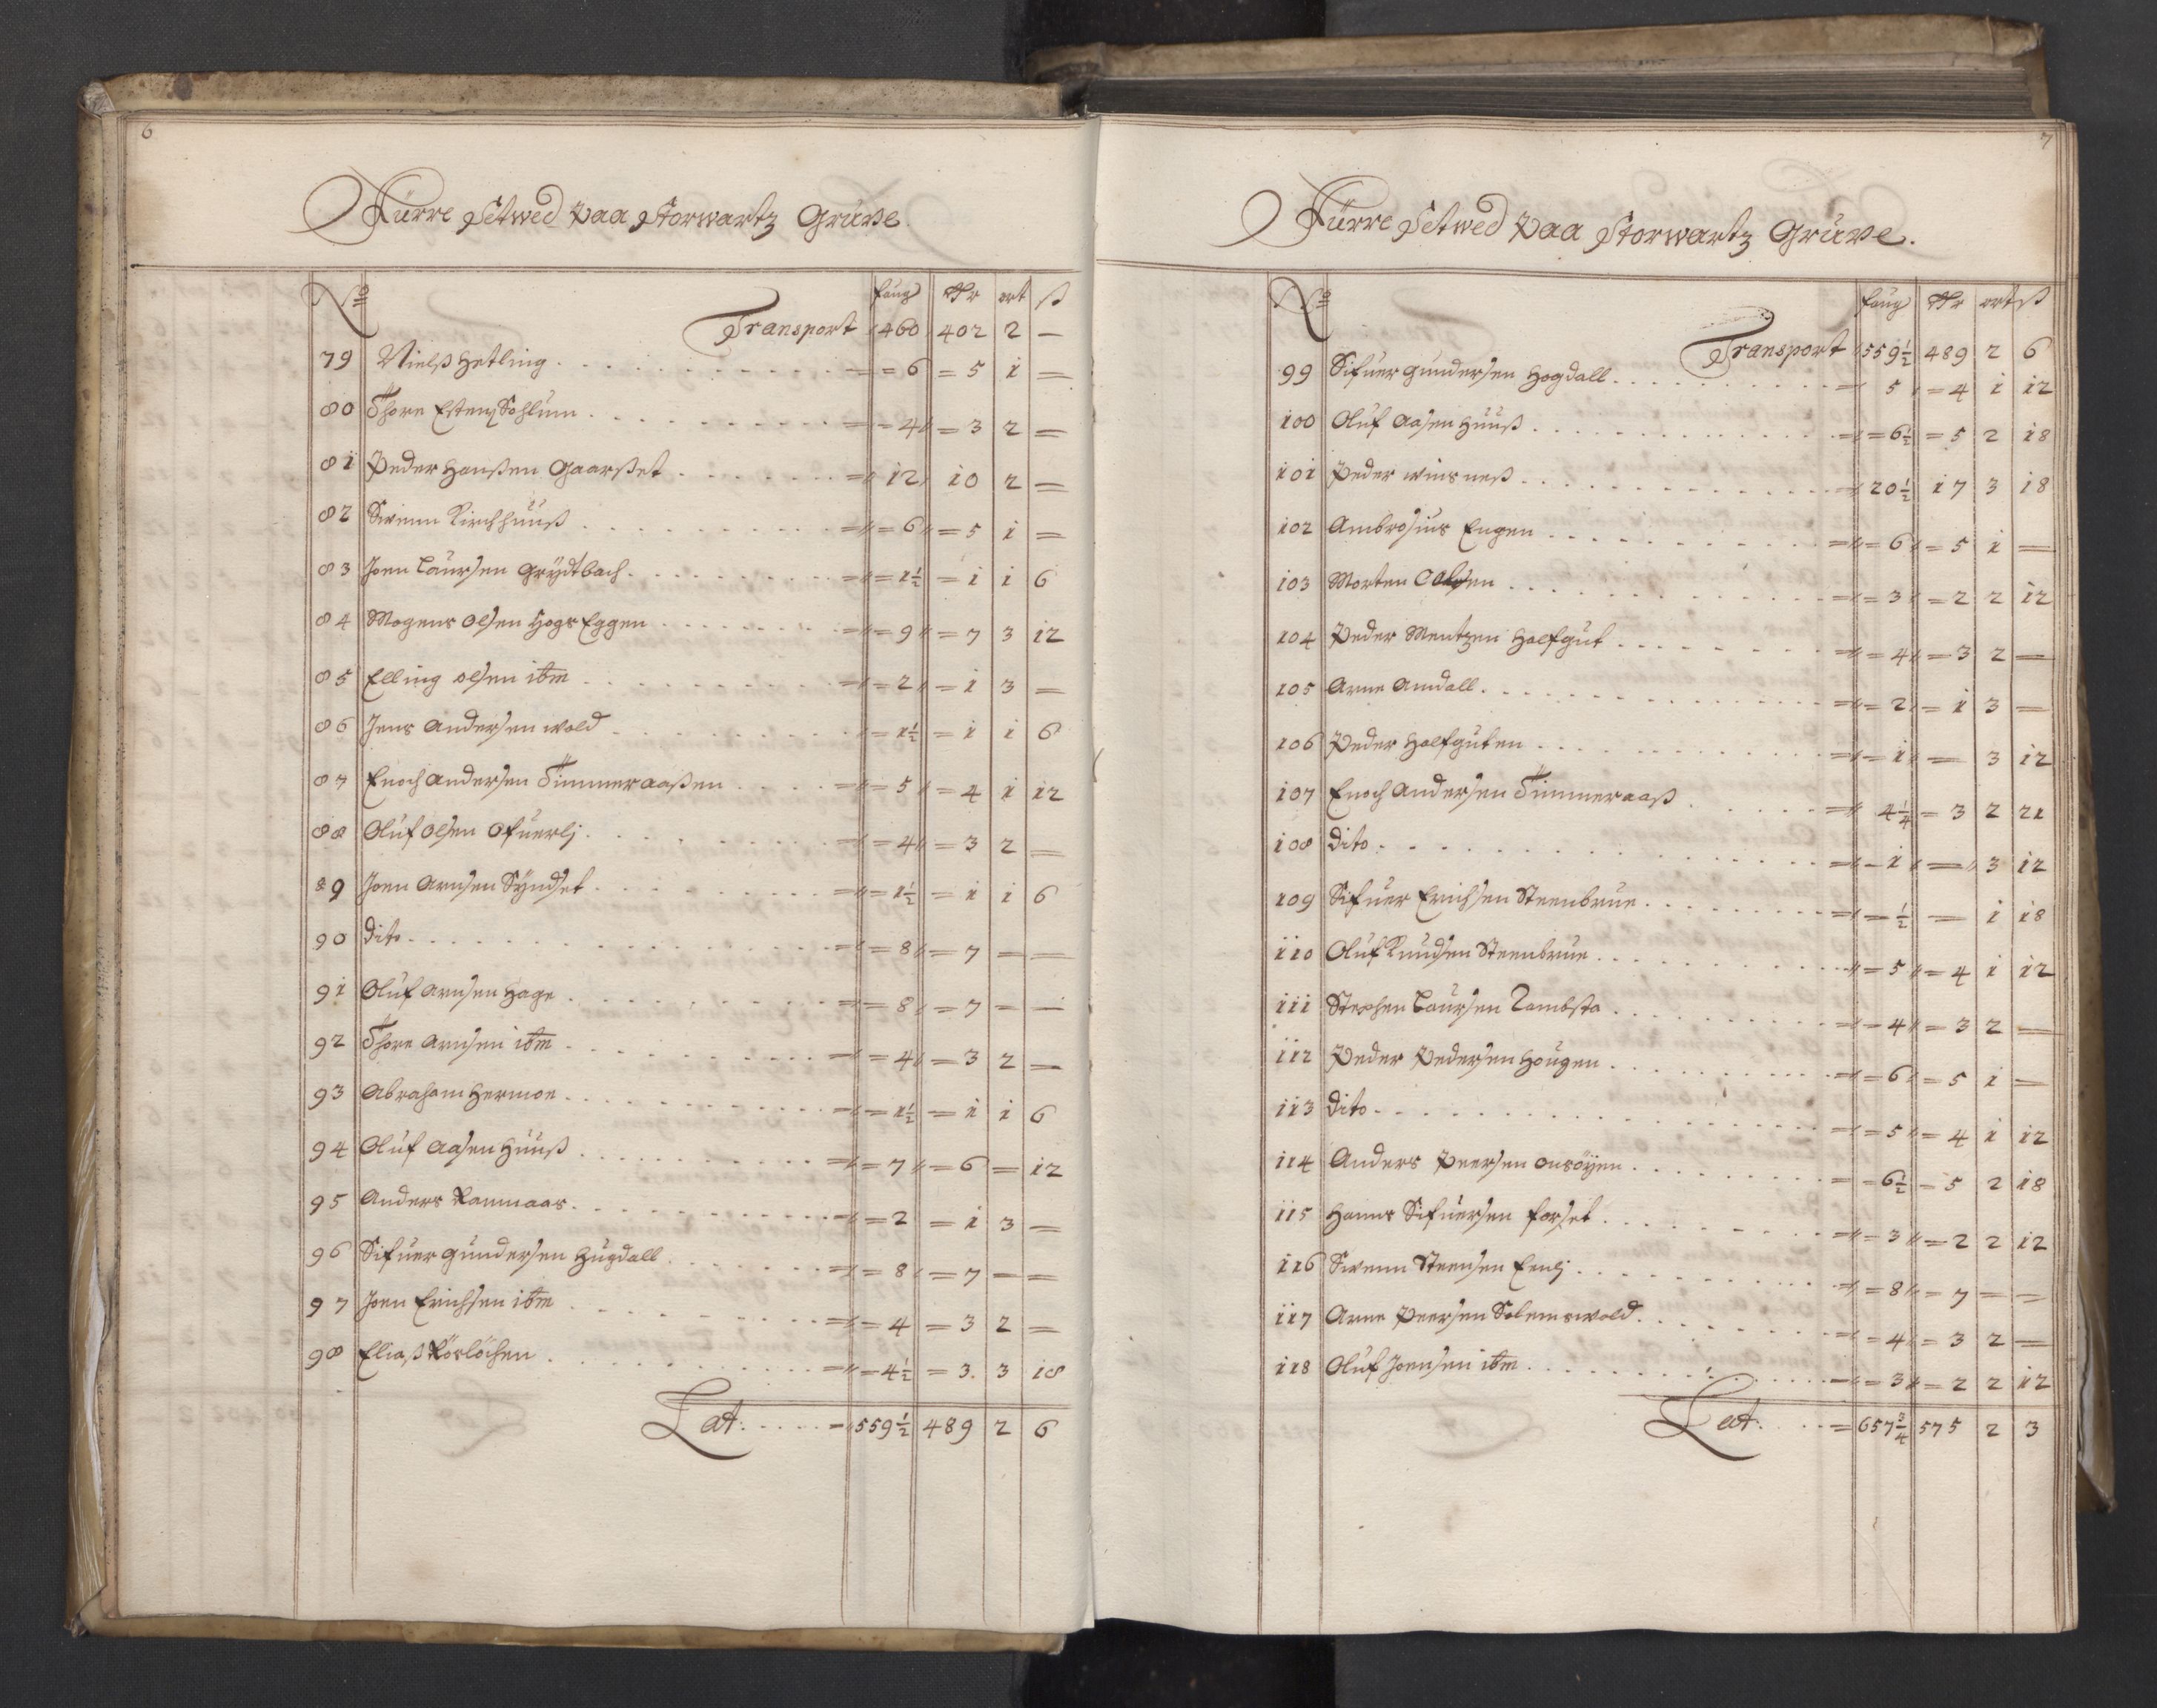 6
Fürre Setwed Paa Storwartz Grüve
No faug Rdr ort ß
Transport 460 402 2 —
79 Nielß Hetling = 6 = 5 1 —
80 Thore Estensohlum = 4 = 3 2 —
81 Peder Hanßen Gaarßet 12 10 2 —
82 Svenn Kirchhuuß = 6 = 5 1 —
83 Joen Laursen Grydtbach = 1½ = 1 1 6
84 Mogens Olsen Hogs Eggen = 9 = 7 3 12
85 Elling Olsen ibm = 2 = 1 3 —
86 Jens Andersen wold = 1½ = 1 1 6
87 Enoch Andersen Timmeraaßen = 5 = 4 1 12
88 Oluf Olsen Ofuerlj = 4 = 3 2 —
89 Joen Arnsen Syndset = 1½ = 1 1 6
90 Dito = 8 = 7 — —
91 Oluf Arnsen Hage = 8 = 7 — —
92 Thore Arnsen ibm = 4 = 3 2 —
93 Abraham Hermoe = 1½ = 1 1 6
94 Oluf Aasen Huuß = 7 = 6 — 12
95 Anders Rammaas = 2 = 1 3 —
96 Sifuer Gundersen Hugdall = 8 = 7 — —
97 Joen Erichsen ibm = 4 = 3 2 —
98 Eliaß Rörlöchen = 4½ = 3 3 18
Lat: 559½ 489 2 6
7
Fürre Setwed Paa Storwartz Grüve.
No faug Rdr ort ß
Transport 559½ 489 2 6
99 Sifuer Gundersen Hogdall 5 = 4 1 12
100 Oluf Aasen Huuß = 6½ = 5 2 18
101 Peder winsneß 20½ 17 3 18
102 Ambrosius Engen = 6 = 5 1 —
103 Morten Olsen = 3 = 2 2 12
104 Peder Mentzen Halfgut = 4 = 3 2 —
105 Arne Amdall = 2 = 1 3 —
106 Peder Halfguten = 1 — 3 12
107 Enoch Andersen Timmeraaß 4¼ = 3 2 21
108 Dito = 1 — 3 12
109 Sifuer Erichsen Steenbrue = ½ — 1 18
110 Oluf Knudsen Steenbrue = 5 = 4 1 12
111 Stephen Laursen Rambsta = 4 = 3 2 —
112 Peder Pedersen Hougen = 6 = 5 1 —
113 Dito = 5 = 4 1 12
114 Anders Peersen Onsöyen = 6½ = 5 2 18
115 Hanns Sifuersen Forset = 3 = 2 2 12
116 Svenn Steensen Eenlj = 8 = 7 — —
117 Arne Peersen Solemswold = 4 = 3 2 —
118 Oluf Joensen ibm = 3 = 2 2 12
Lat: 657¾ 575 2 3